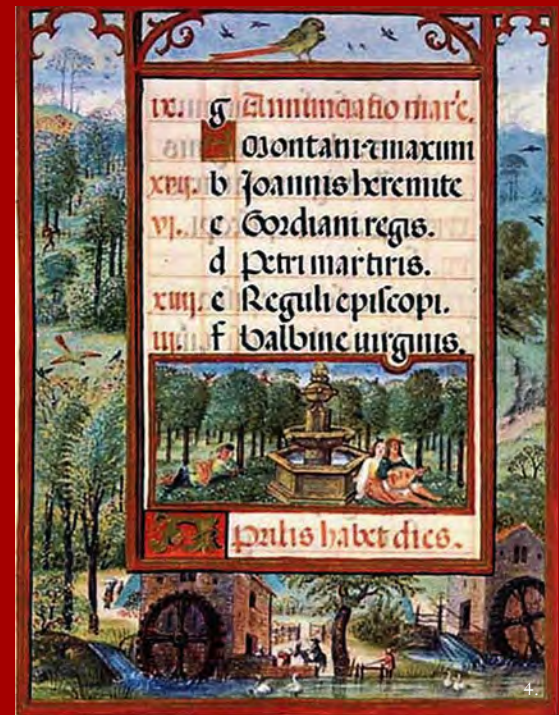 ix. g Annunciatio marie.
A Montani τ maximi
xvij. b Joannis heremite
vj. c Gordiani regis.
d Petri martiris.
xiiij. e Reguli episcopi.
iij. f Balbine uirginis.
Aprilis habet dies.
4.